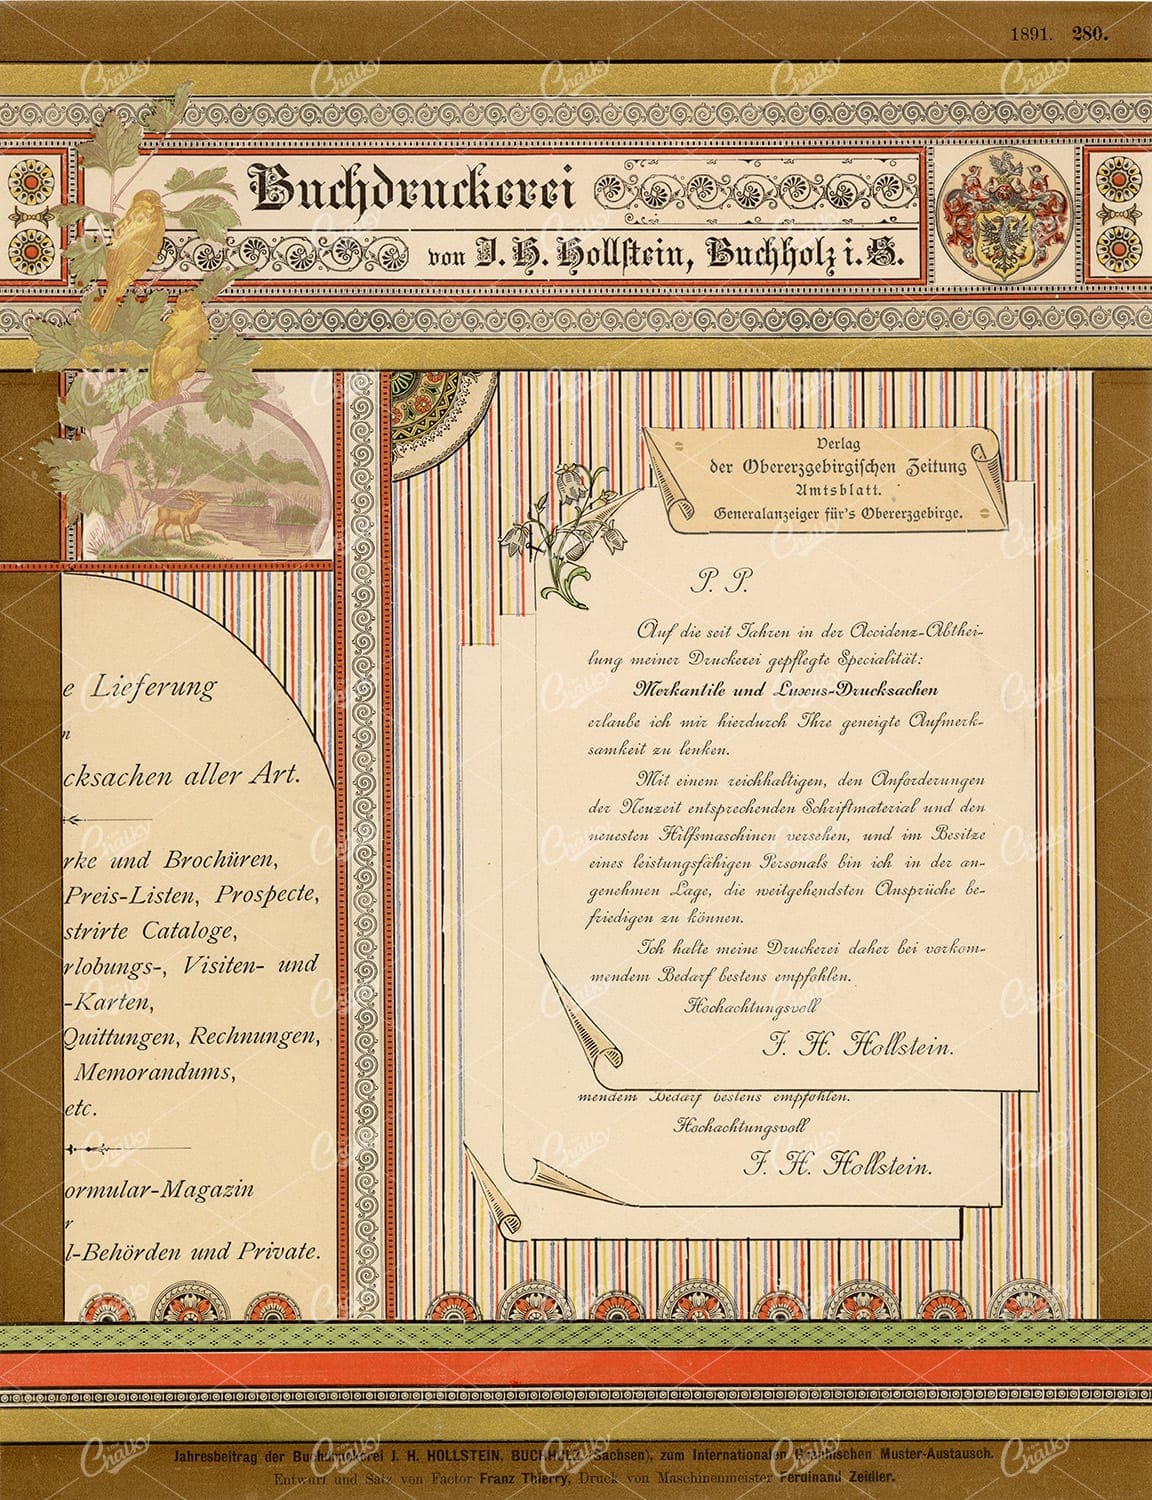 1891. 280.
Buchdruckerei
von J. H. Hollstein, Buchholz i. S.
Verlag
der Obererzgebirgischen Zeitung
Amtsblatt.
Generalanzeiger für's Obererzgebirge.
P. P.
Auf die seit Jahren in der Accidenz-Abthei-
lung meiner Druckerei gepflegte Specialität:
Merkantile und Luxus-Drucksachen
erlaube ich mir hierdurch Ihre geneigte Aufmerk-
samkeit zu lenken.
Mit einem reichhaltigen, den Anforderungen
der Neuzeit entsprechenden Schriftmaterial und den
neuesten Hilfsmaschinen versehen, und im Besitze
eines leistungsfähigen Personals bin ich in der an-
genehmen Lage, die weitgehendsten Ansprüche be-
friedigen zu können.
Ich halte meine Druckerei daher bei vorkom-
mendem Bedarf bestens empfohlen.
Hochachtungsvoll
J. H. Hollstein.
mendem Bedarf bestens empfohlen.
Hochachtungsvoll
J. H. Hollstein.
e Lieferung
n
cksachen aller Art.
rke und Brochüren,
Preis-Listen, Prospecte,
strirte Cataloge,
rlobungs-, Visiten- und
-Karten,
Quittungen, Rechnungen,
Memorandums,
etc.
ormular-Magazin
r
l-Behörden und Private.
Jahresbeitrag der Buchdruckerei J. H. HOLLSTEIN, BUCHHOLZ (Sachsen), zum Internationalen Graphischen Muster-Austausch.
Entwurf und Satz von Factor Franz Thierry, Druck von Maschinenmeister Ferdinand Zeidler.